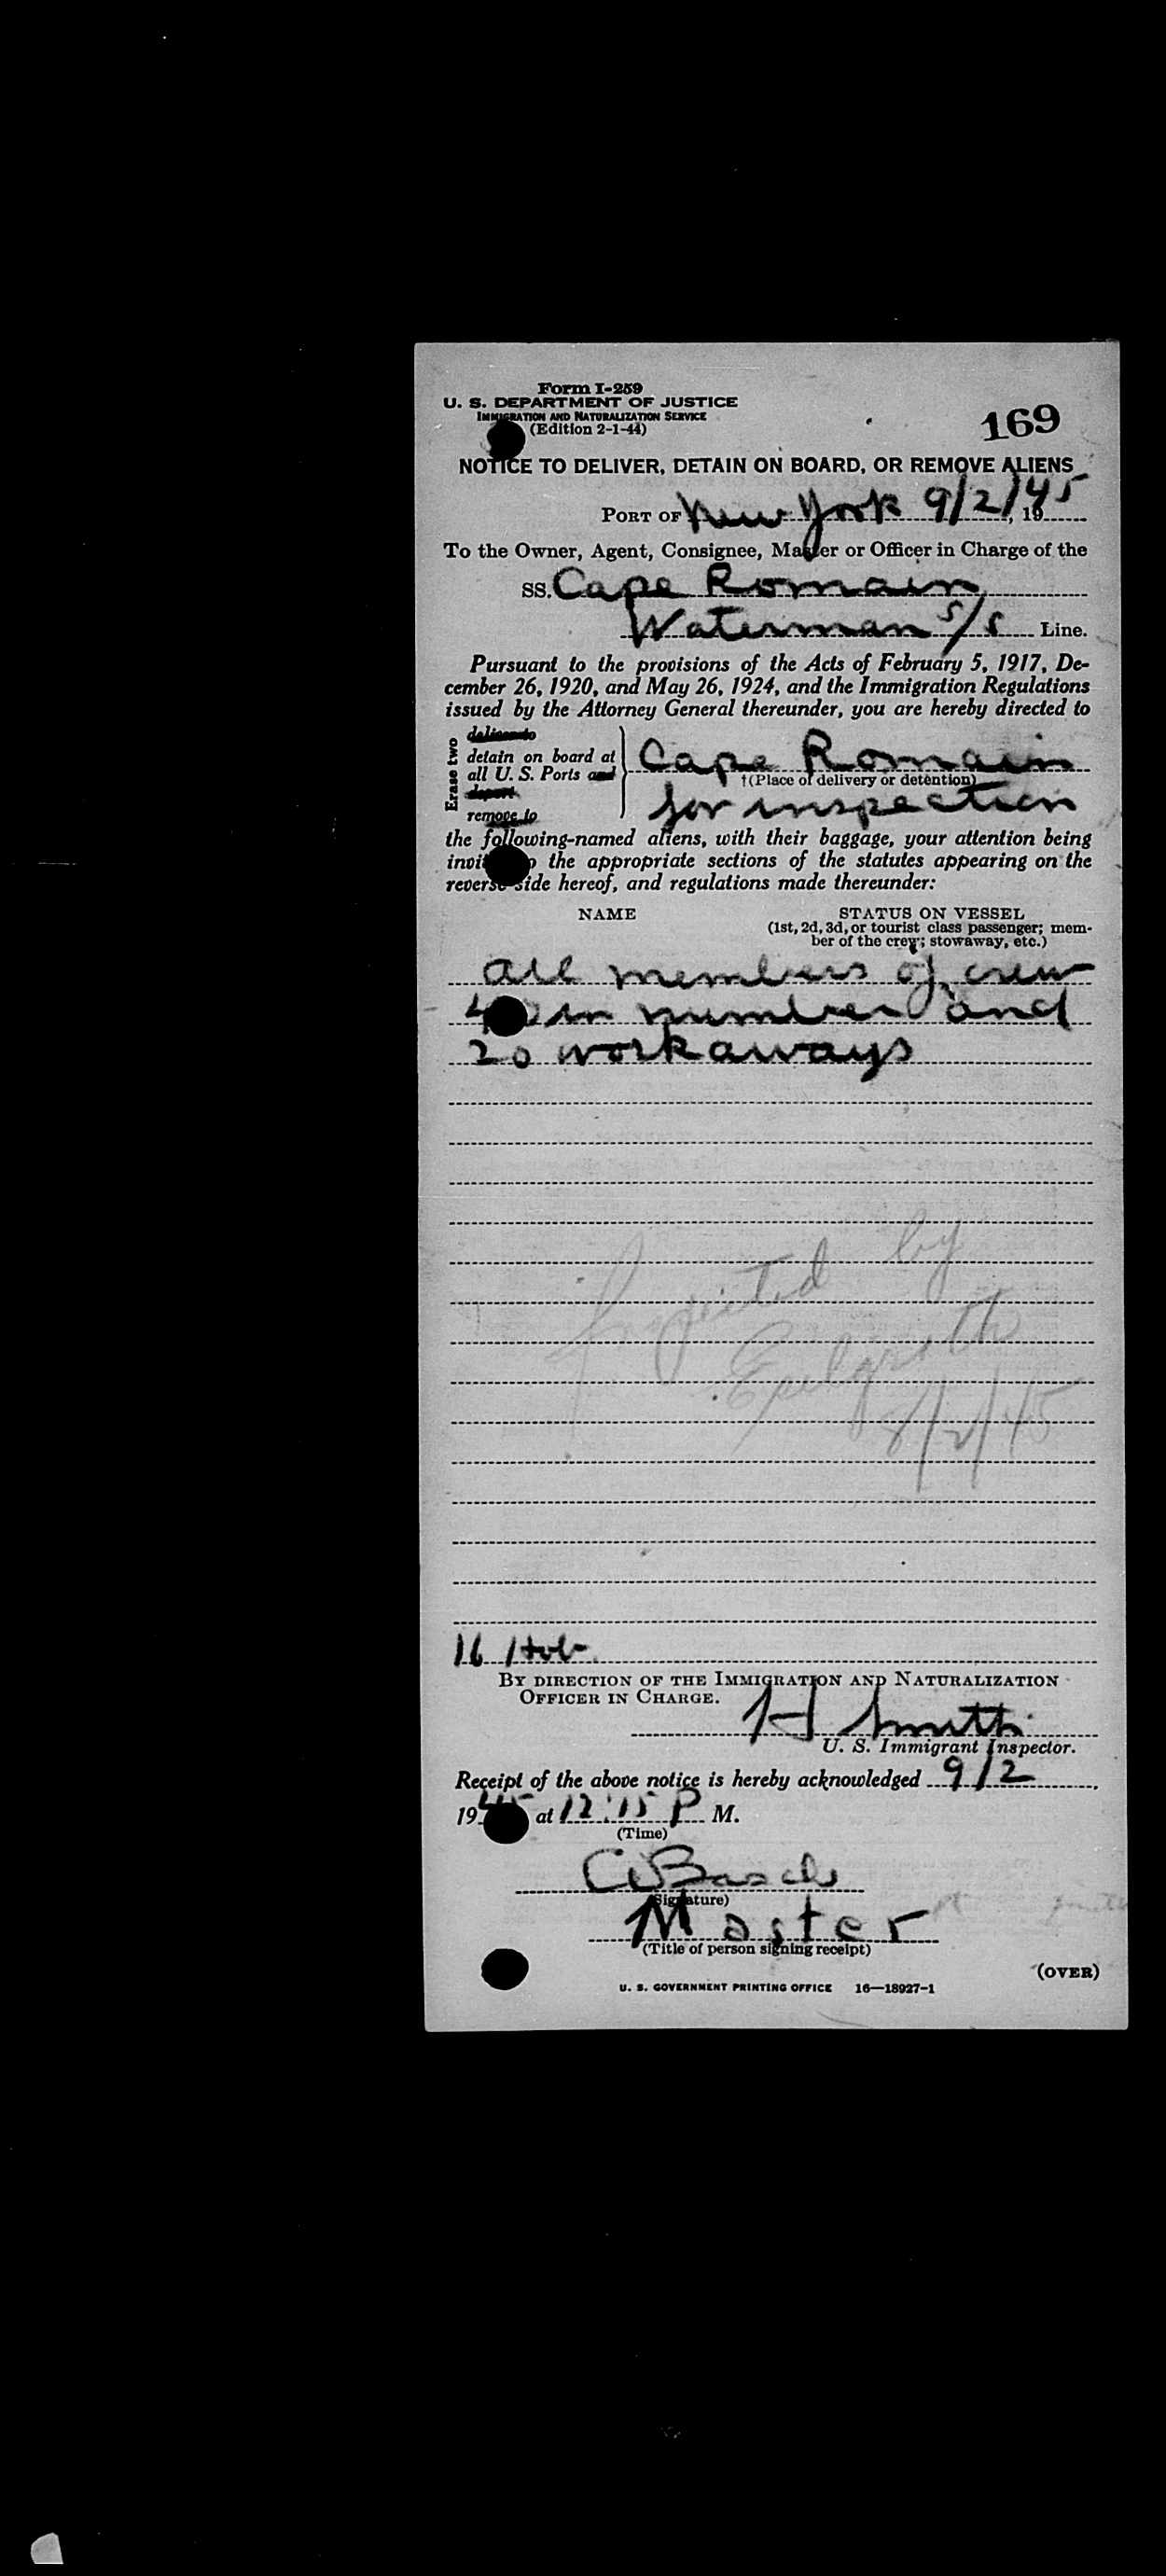 Form I-259
U. S. DEPARTMENT OF JUSTICE
IMMIGRATION AND NATURALIZATION SERVICE
(Edition 2-1-44)
169
NOTICE TO DELIVER, DETAIN ON BOARD, OR REMOVE ALIENS
PORT OF New York 9/2/45, 19
To the Owner, Agent, Consignee, Master or Officer in Charge of the
SS. Cape Romain
Waterman S/S Line.
Pursuant to the provisions of the Acts of February 5, 1917, De-
cember 26, 1920, and May 26, 1924, and the Immigration Regulations
issued by the Attorney General thereunder, you are hereby directed to
Erase two
deliver to
detain on board at
all U. S. Ports and
deport
remove to
Cape Romain
†(Place of delivery or detention)
for inspection
the following-named aliens, with their baggage, your attention being
invited to the appropriate sections of the statutes appearing on the
reverse side hereof, and regulations made thereunder:
NAME
STATUS ON VESSEL
(1st, 2d, 3d, or tourist class passenger; mem-
ber of the crew; stowaway, etc.)
all members of crew
in number and
20 workaways
Inspected by
8/2/45
16
BY DIRECTION OF THE IMMIGRATION AND NATURALIZATION
OFFICER IN CHARGE.
H Smith
U. S. Immigrant Inspector.
Receipt of the above notice is hereby acknowledged 9/2,
1945 at 12:15 P M.
(Time)
(Signature)
Master
(Title of person signing receipt)
(OVER)
U. S. GOVERNMENT PRINTING OFFICE 16—18927-1